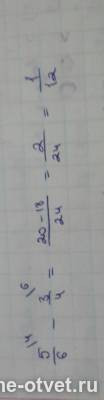 5/6 \4 − 3/4 \6 = 20-18/24 = 2/24 = 1/12
ne-otvet.ru